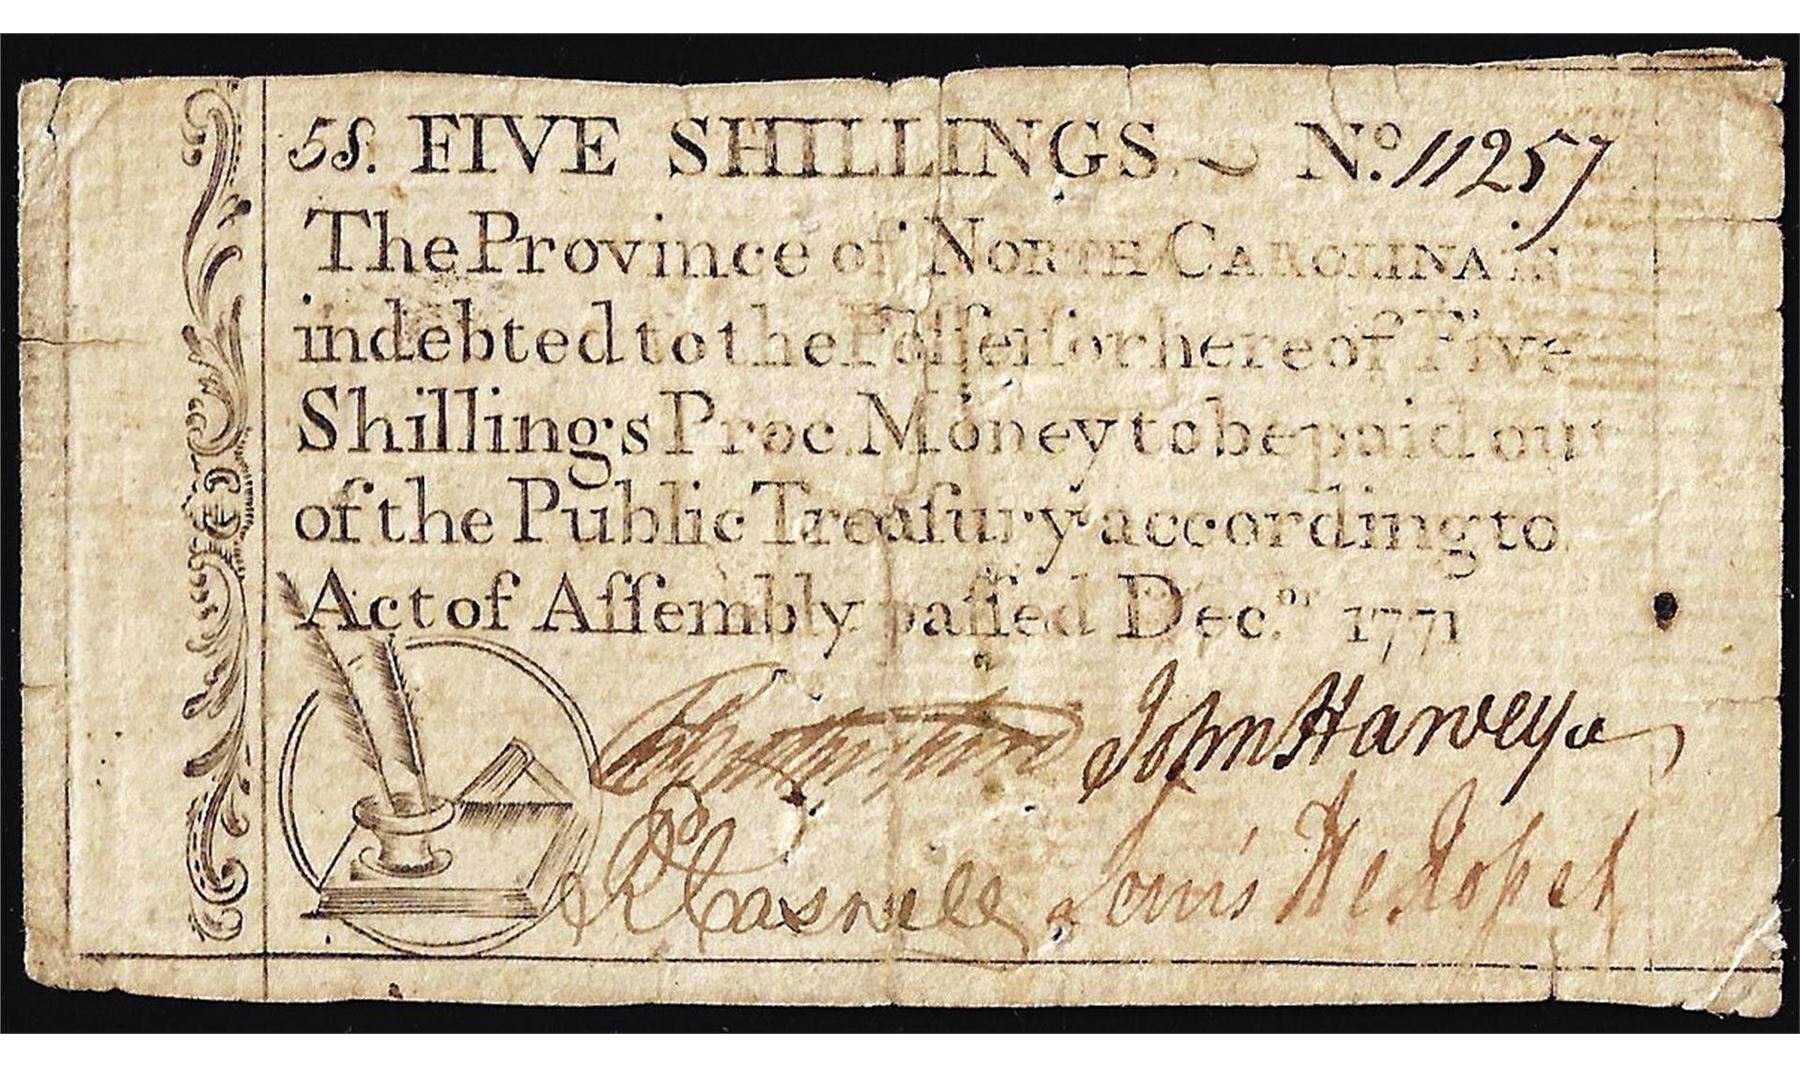 5S. FIVE SHILLINGS. No. 11257
The Province of NORTH CAROLINA is
indebted to the Poſſeſſor hereof Five
Shillings Proc. Money to be paid out
of the Public Treaſury according to
Act of Aſſembly paſſed Dec.er 1771
John Harvey
R Caswell Lewis